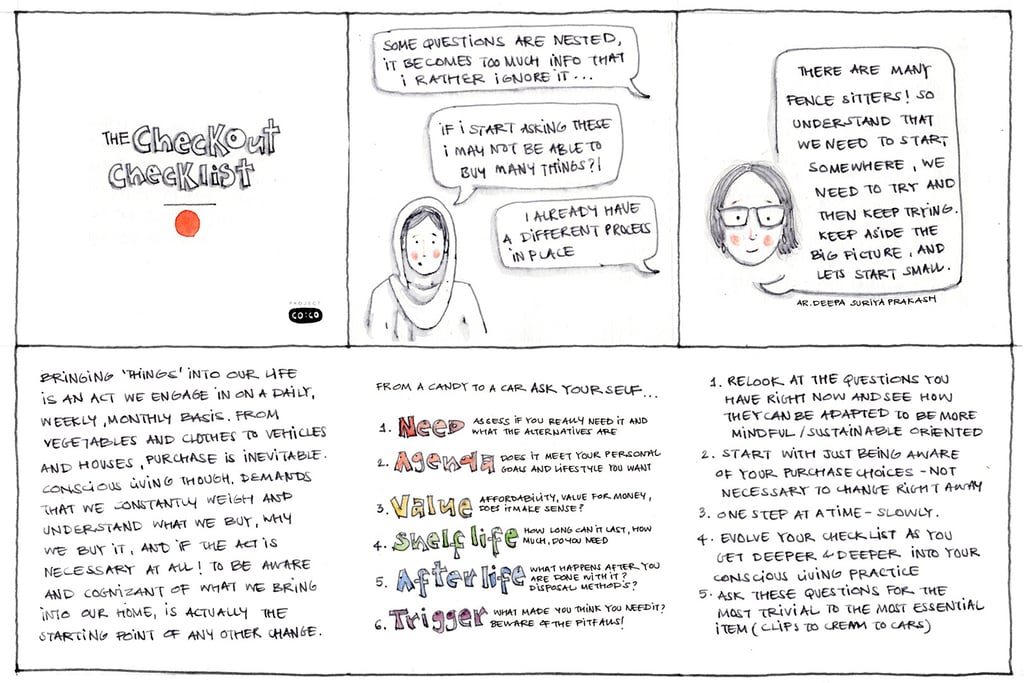 THE CHECKOUT
CHECKLIST
PROJECT
CO:CO
SOME QUESTIONS ARE NESTED,
IT BECOMES TOO MUCH INFO THAT
I RATHER IGNORE IT...
IF I START ASKING THESE
I MAY NOT BE ABLE TO
BUY MANY THINGS?!
I ALREADY HAVE
A DIFFERENT PROCESS
IN PLACE
THERE ARE MANY
FENCE SITTERS! SO
UNDERSTAND THAT
WE NEED TO START
SOMEWHERE, WE
NEED TO TRY AND
THEN KEEP TRYING.
KEEP ASIDE THE
BIG PICTURE, AND
LETS START SMALL.
AR.DEEPA SURIYA PRAKASH
BRINGING 'THINGS' INTO OUR LIFE
IS AN ACT WE ENGAGE IN ON A DAILY,
WEEKLY, MONTHLY BASIS. FROM
VEGETABLES AND CLOTHES TO VEHICLES
AND HOUSES, PURCHASE IS INEVITABLE.
CONSCIOUS LIVING THOUGH, DEMANDS
THAT WE CONSTANTLY WEIGH AND
UNDERSTAND WHAT WE BUY, WHY
WE BUY IT, AND IF THE ACT IS
NECESSARY AT ALL! TO BE AWARE
AND COGNIZANT OF WHAT WE BRING
INTO OUR HOME, IS ACTUALLY THE
STARTING POINT OF ANY OTHER CHANGE.
FROM A CANDY TO A CAR ASK YOURSELF...
1. NEED ASSESS IF YOU REALLY NEED IT AND
WHAT THE ALTERNATIVES ARE
2. AGENDA DOES IT MEET YOUR PERSONAL
GOALS AND LIFESTYLE YOU WANT
3. VALUE AFFORDABILITY, VALUE FOR MONEY,
DOES IT MAKE SENSE?
4. SHELF LIFE HOW LONG CAN IT LAST, HOW
MUCH, DO YOU NEED
5. AFTERLIFE WHAT HAPPENS AFTER YOU
ARE DONE WITH IT?
DISPOSAL METHODS?
6. TRIGGER WHAT MADE YOU THINK YOU NEED IT?
BEWARE OF THE PITFALLS!
1. RELOOK AT THE QUESTIONS YOU
HAVE RIGHT NOW AND SEE HOW
THEY CAN BE ADAPTED TO BE MORE
MINDFUL/SUSTAINABLE ORIENTED
2. START WITH JUST BEING AWARE
OF YOUR PURCHASE CHOICES - NOT
NECESSARY TO CHANGE RIGHT AWAY
3. ONE STEP AT A TIME - SLOWLY.
4. EVOLVE YOUR CHECKLIST AS YOU
GET DEEPER & DEEPER INTO YOUR
CONSCIOUS LIVING PRACTICE
5. ASK THESE QUESTIONS FOR THE
MOST TRIVIAL TO THE MOST ESSENTIAL
ITEM (CLIPS TO CREAM TO CARS)